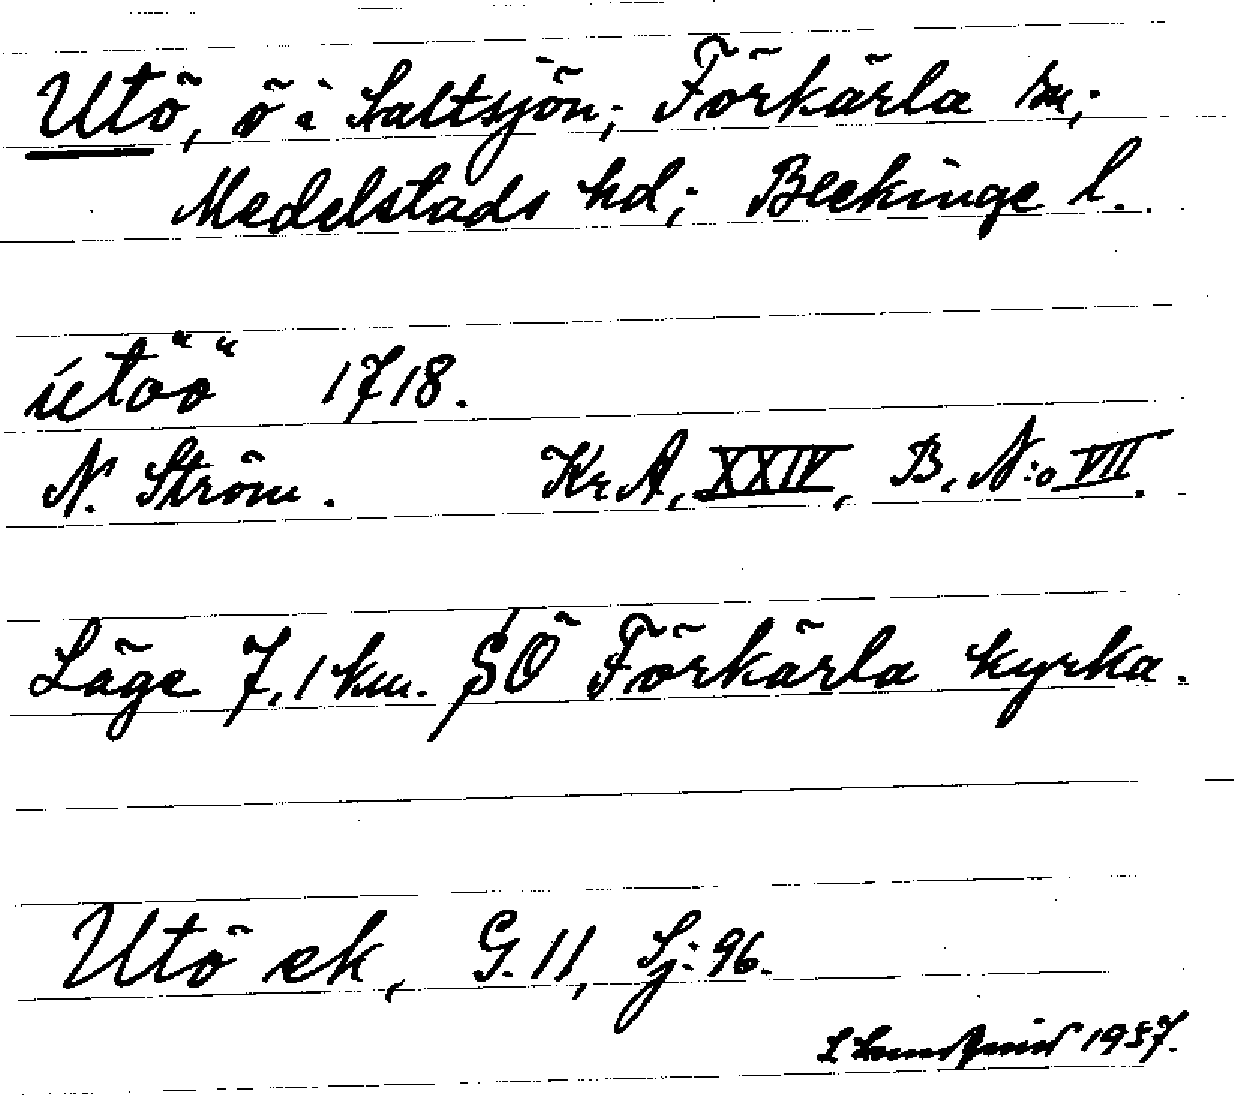 Utö, ö i Saltsjön; Förkärla sn;
Medelstads hd; Blekinge l.
ütöö 1718.
N. Ström. Kr A, XXIV, B, N:o VII.
Läge 7,1 km. SÖ Förkärla kyrka.
Utö ek, G. 11, Sj: 96.
1937.